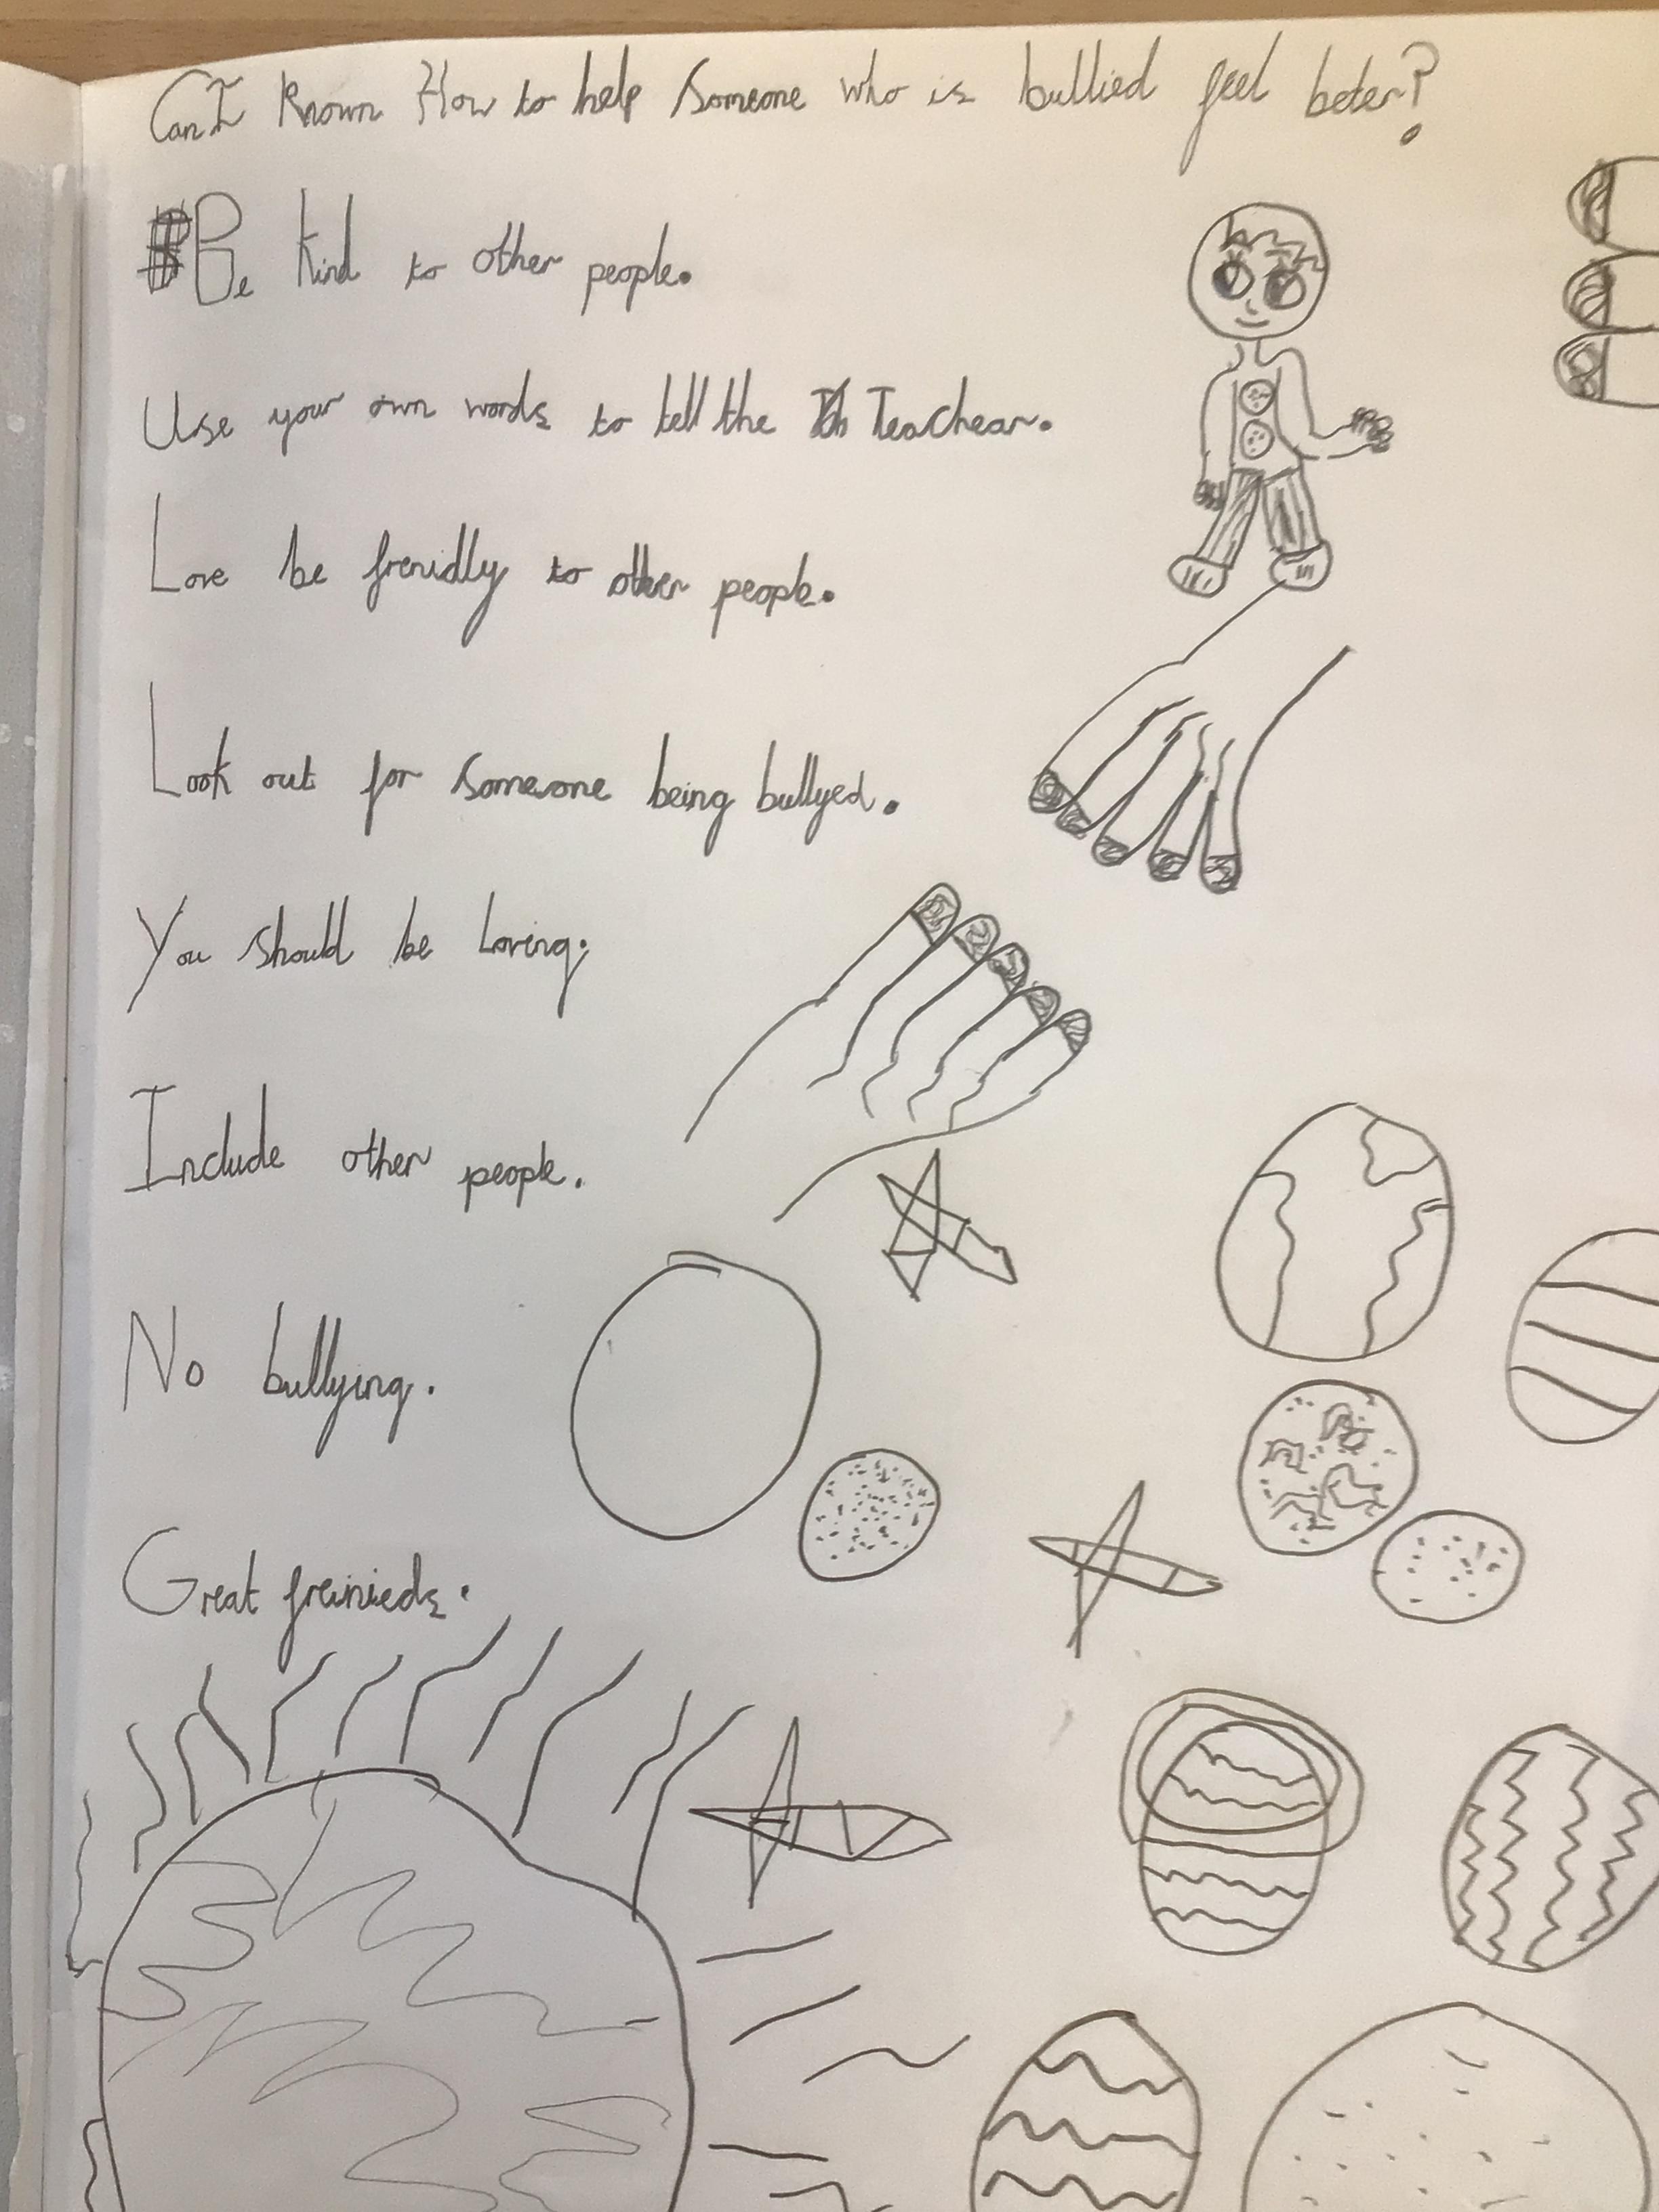 Can I Known How to help Someone who is bullied feel beter?
Be kind to other people.
Use your own words to tell the Teachear.
Love be freindly to other people.
Look out for someone being bullyed.
You should be Loving.
Include other people.
No bullying.
Great freinieds.